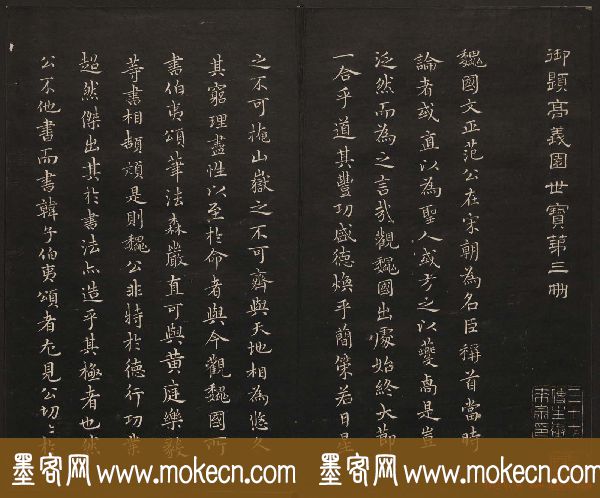 御題高義園世寶第三冊
魏國文正范公在宋朝為名臣稱首當時
論者或直以為聖人或方之以夔卨是豈
泛然而為之言哉觀魏國出處始終大節
一合乎道其豐功盛德煥乎簡策若日星
之不可掩山嶽之不可齊與天地相為悠久
其窮理盡性以至於命者與今觀魏國所
書伯夷頌筆法森嚴直可與黃庭樂毅
等書相頡頏是則魏公非特於德行功業
超然傑出其於書法亦造乎其極者也然
公不他書而書韓子伯夷頌者尤見公切切於
墨客网 www.mokecn.com
墨客网 www.mokecn.com